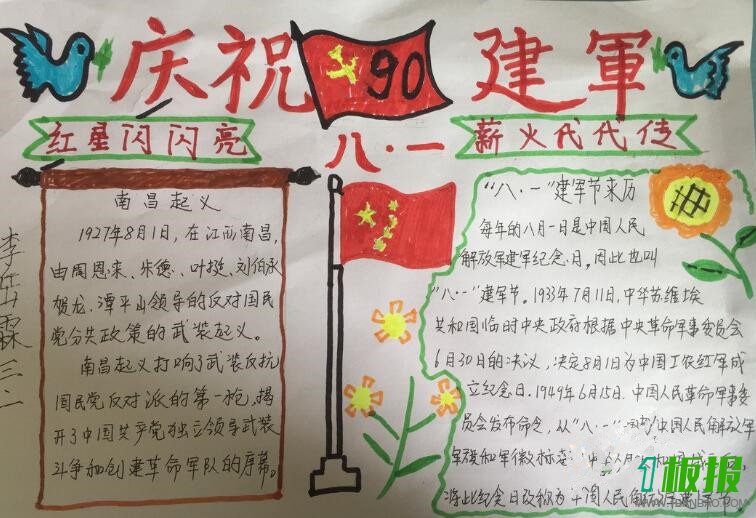 庆祝 90 建軍
红星闪闪亮
八·一
薪火代代传
南昌起义
1927年8月1日，在江西南昌，
由周恩来、朱德、叶挺、刘伯承
贺龙、谭平山领导的反对国民
党分共政策的武装起义。
南昌起义打响了武装反抗
国民党反对派的第一枪，揭
开了中国共产党独立领导武装
斗争和创建革命军队的序幕。
李岳霖 三二
“八·一”建军节来历
每年的八月一日是中国人民
解放军建军纪念日。因此也叫
“八·一”建军节。1933年7月11日，中华苏维埃
共和国临时中央政府根据中央革命军事委员会
6月30日的决议，决定8月1日为中国工农红军成
立纪念日。1949年6月15日，中国人民革命军事委
员会发布命令，从“八·一”中国人民解放军
军旗和军徽标志
将此纪念日改称为中国人民
板报